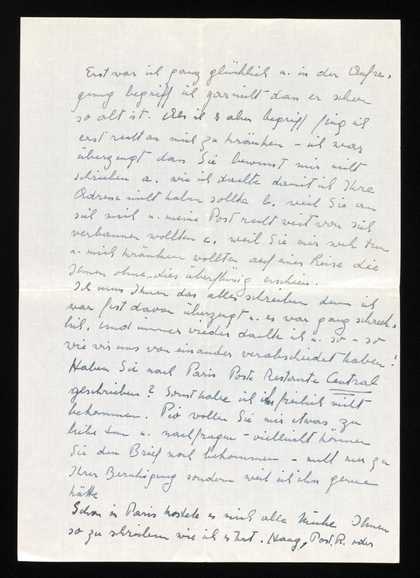 Erst war ich ganz glücklich u. in der Aufre-
gung begriff ich gar nicht dass er schon
so alt ist. Als ich es aber begriff fing ich
erst recht an mich zu kränken - ich war
überzeugt dass Sie bewusst mir nicht
schrieben a. wie ich dachte damit ich Ihre
Adresse nicht haben sollte b. weil Sie von
sich mich u. meine Post recht weit von sich
verbannen wollten c. weil Sie mir weh tun
u. mich kränken wollten auf einer Reise die
Ihnen ohne dies überflüssig erschien.
Ich muss Ihnen das alles schreiben denn ich
war fest davon überzeugt u. es war ganz schreck-
lich. Und immer wieder dachte ich u. so - so
wie wir uns von einander verabschiedet haben!
Haben Sie nach Paris Poste Restante Central
geschrieben? Sonst habe ich ihn freilich nicht
bekommen. Bitte wollen Sie mir etwas zu
liebe tun u. nachfragen - vielleicht können
Sie den Brief noch bekommen - nicht nur zu
Ihrer Beruhigung sondern weil ich ihn gerne
hätte
Schon in Paris kostete es mich alle Mühe Ihnen
so zu schreiben wie ich es tat. Haag, Post. R. oder